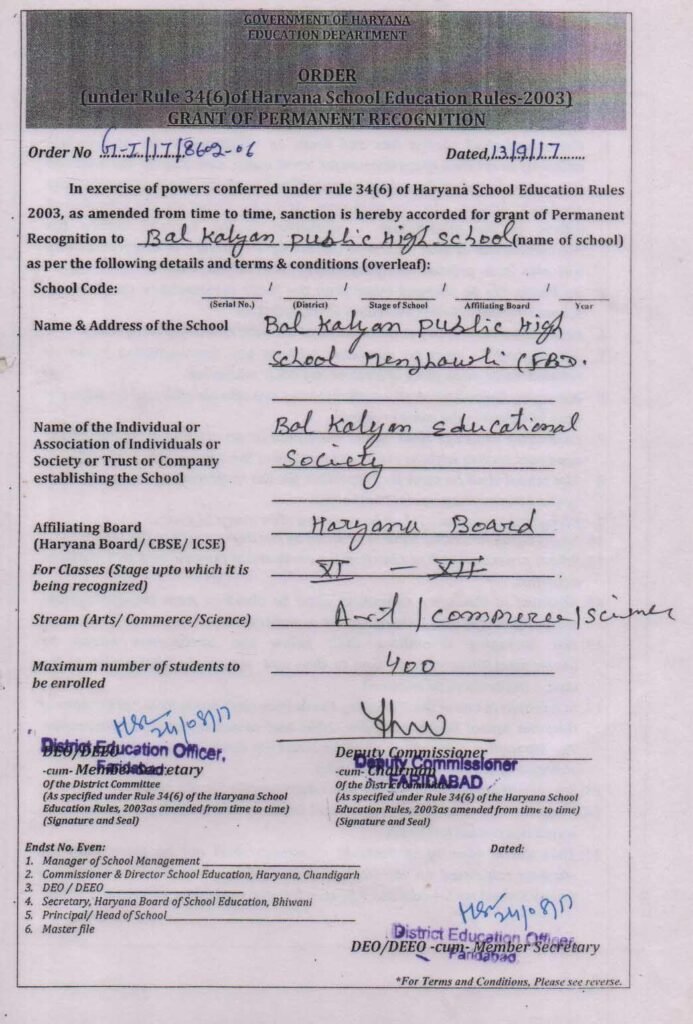 GOVERNMENT OF HARYANA
EDUCATION DEPARTMENT
ORDER
(under Rule 34(6)of Haryana School Education Rules-2003)
GRANT OF PERMANENT RECOGNITION
Order No G-I/17/8602-06 Dated, 13/9/17
In exercise of powers conferred under rule 34(6) of Haryana School Education Rules
2003, as amended from time to time, sanction is hereby accorded for grant of Permanent
Recognition to Bal Kalyan public High school (name of school)
as per the following details and terms & conditions (overleaf):
School Code: / / / /
(Serial No.) (District) Stage of School Affiliating Board Year
Name & Address of the School Bal Kalyan public High
school (FBD.
Name of the Individual or Bal Kalyan Educational
Association of Individuals or
Society or Trust or Company Society
establishing the School
Affiliating Board Haryana Board
(Haryana Board/ CBSE/ ICSE)
For Classes (Stage upto which it is XI — XII
being recognized)
Stream (Arts/ Commerce/Science) Art / commerce / science
Maximum number of students to 400
be enrolled
24/08/17
DEO/DEEO Deputy Commissioner
District Education Officer, Deputy Commissioner
Faridabad FARIDABAD
-cum- Member Secretary -cum- Chairman
Of the District Committee Of the District Committee
(As specified under Rule 34(6) of the Haryana School (As specified under Rule 34(6) of the Haryana School
Education Rules, 2003as amended from time to time) Education Rules, 2003as amended from time to time)
(Signature and Seal) (Signature and Seal)
Endst No. Even: Dated:
1. Manager of School Management
2. Commissioner & Director School Education, Haryana, Chandigarh
3. DEO / DEEO
4. Secretary, Haryana Board of School Education, Bhiwani
5. Principal/ Head of School
6. Master file
24/08/17
District Education Officer,
Faridabad
DEO/DEEO -cum- Member Secretary
*For Terms and Conditions, Please see reverse.